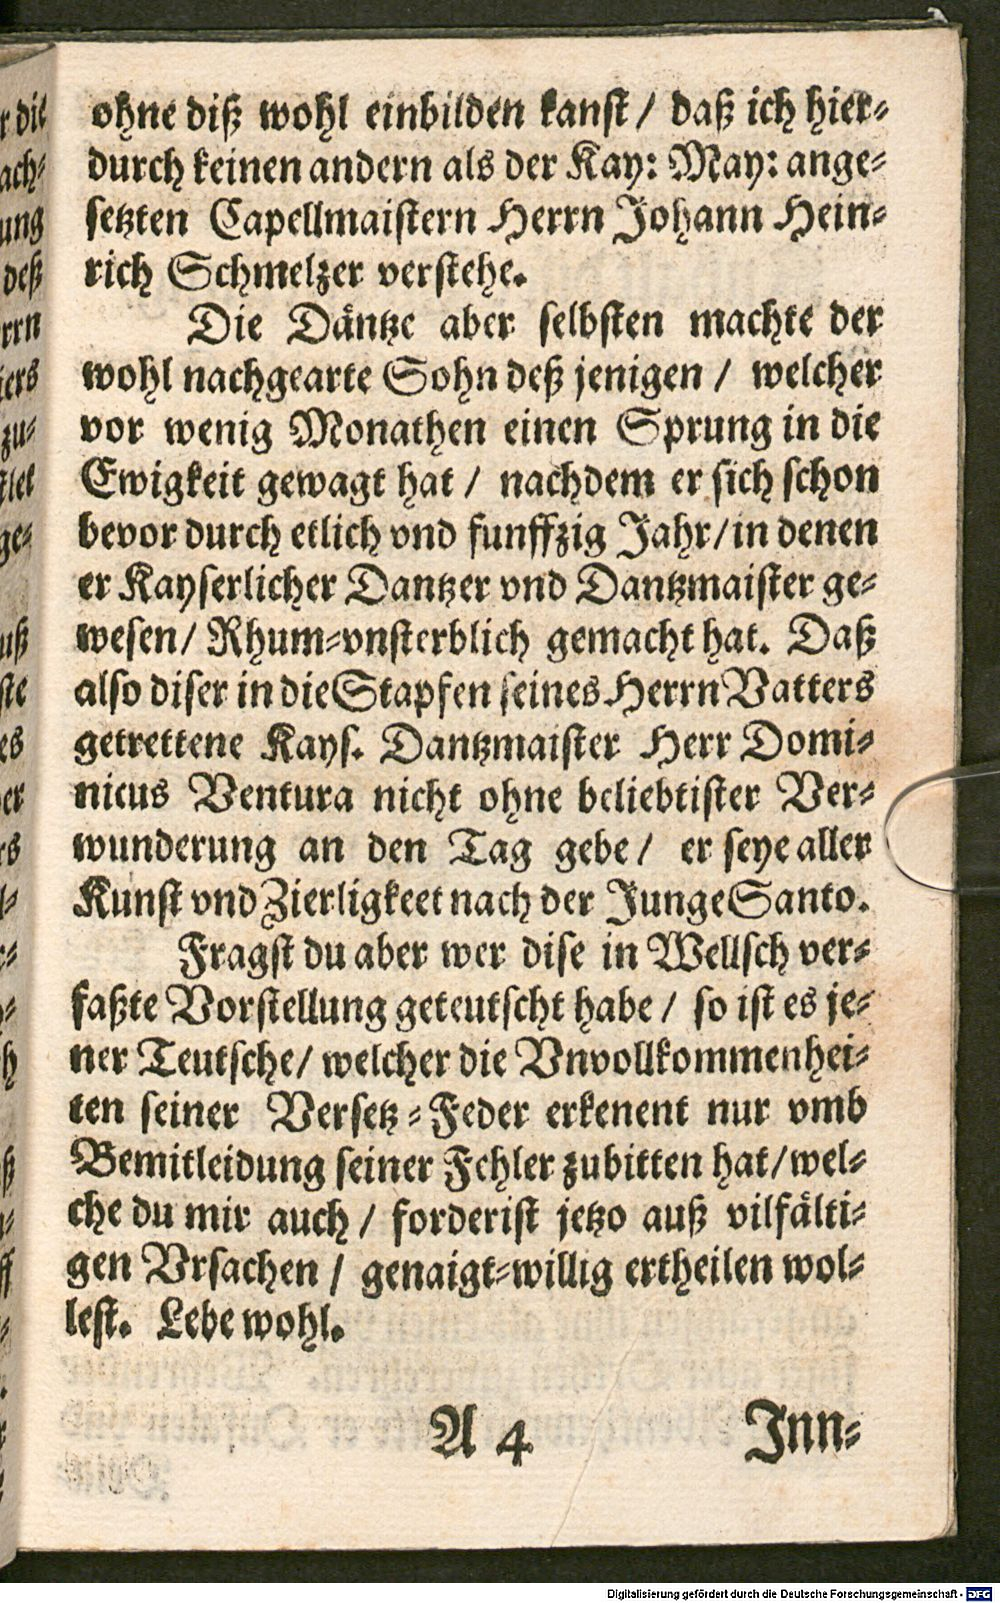 ohne diß wohl einbilden kanst / daß ich hier-
durch keinen andern als der Kay: May: ange-
setzten Capellmaistern Herrn Johann Hein-
rich Schmelzer verstehe.
Die Däntze aber selbsten machte der
wohl nachgearte Sohn deß jenigen / welcher
vor wenig Monathen einen Sprung in die
Ewigkeit gewagt hat / nachdem er sich schon
bevor durch etlich vnd funffzig Jahr / in denen
er Kayserlicher Dantzer vnd Dantzmaister ge-
wesen / Rhum-vnsterblich gemacht hat. Daß
also diser in die Stapfen seines Herrn Vatters
getrettene Kays. Dantzmaister Herr Domi-
nicus Ventura nicht ohne beliebtister Ver-
wunderung an den Tag gebe / er seye aller
Kunst vnd Zierligkeet nach der Junge Santo.
Fragst du aber wer dise in Wellsch ver-
faßte Vorstellung geteutscht habe / so ist es je-
ner Teutsche / welcher die Vnvollkommenhei-
ten seiner Versetz-Feder erkenent nur vmb
Bemitleidung seiner Fehler zubitten hat / wel-
che du mir auch / forderist jetzo auß vilfälti-
gen Vrsachen / genaigt-willig ertheilen wol-
lest. Lebe wohl.
A 4
Inn-
Digitalisierung gefördert durch die Deutsche Forschungsgemeinschaft - DFG